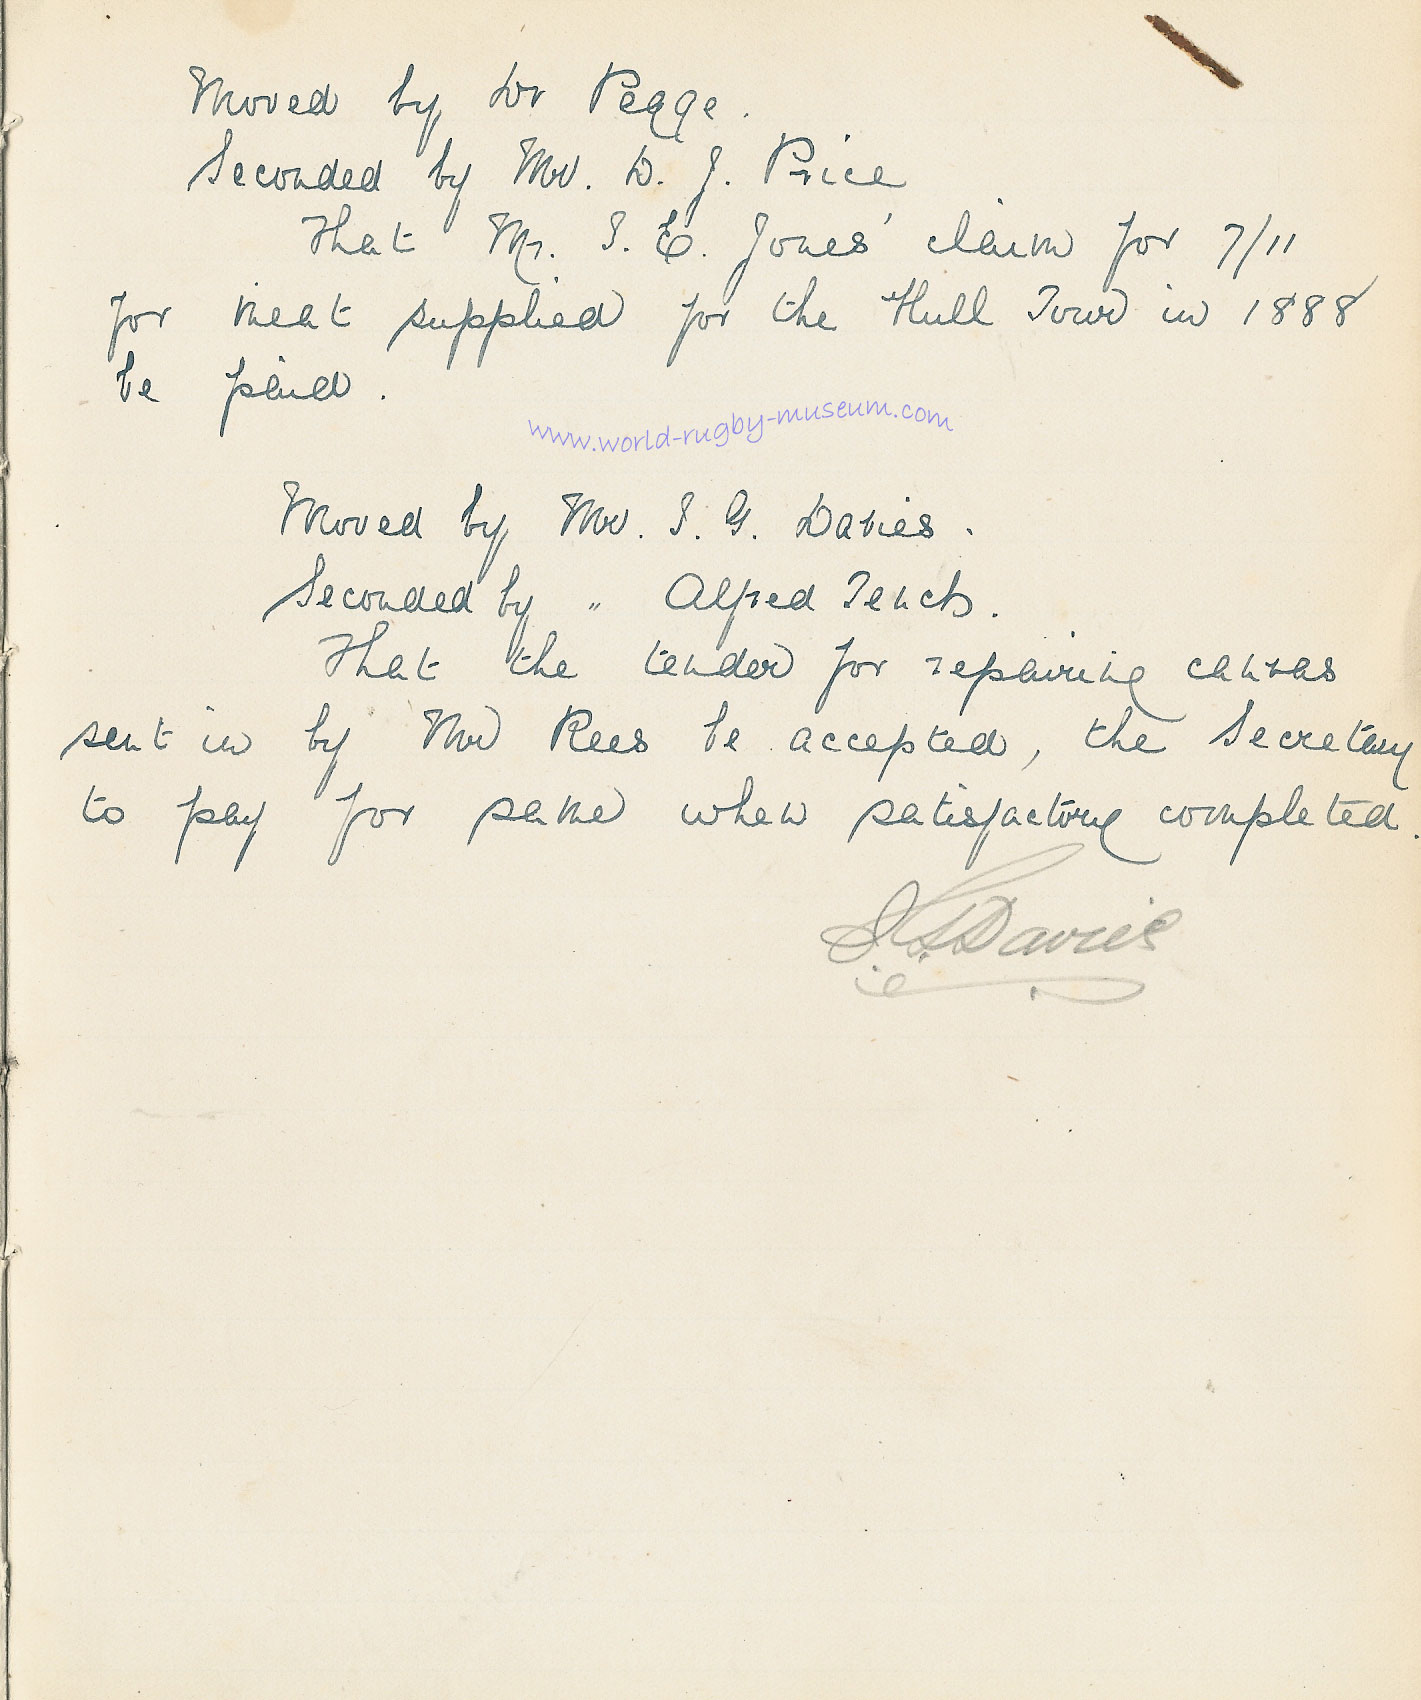 Moved by Dr Pegge.
Seconded by Mr. D. J. Price
That Mr. J. E. Jones' claim for 7/11
for meat supplied for the Hull Tour in 1888
be paid.
www.world-rugby-museum.com
Moved by Mr. J. G. Davies.
Seconded by " Alfred Tench.
That the tender for repairing canvas
sent in by Mr Rees be accepted, the Secretary
to pay for same when satisfactory completed.
J. G. Davies